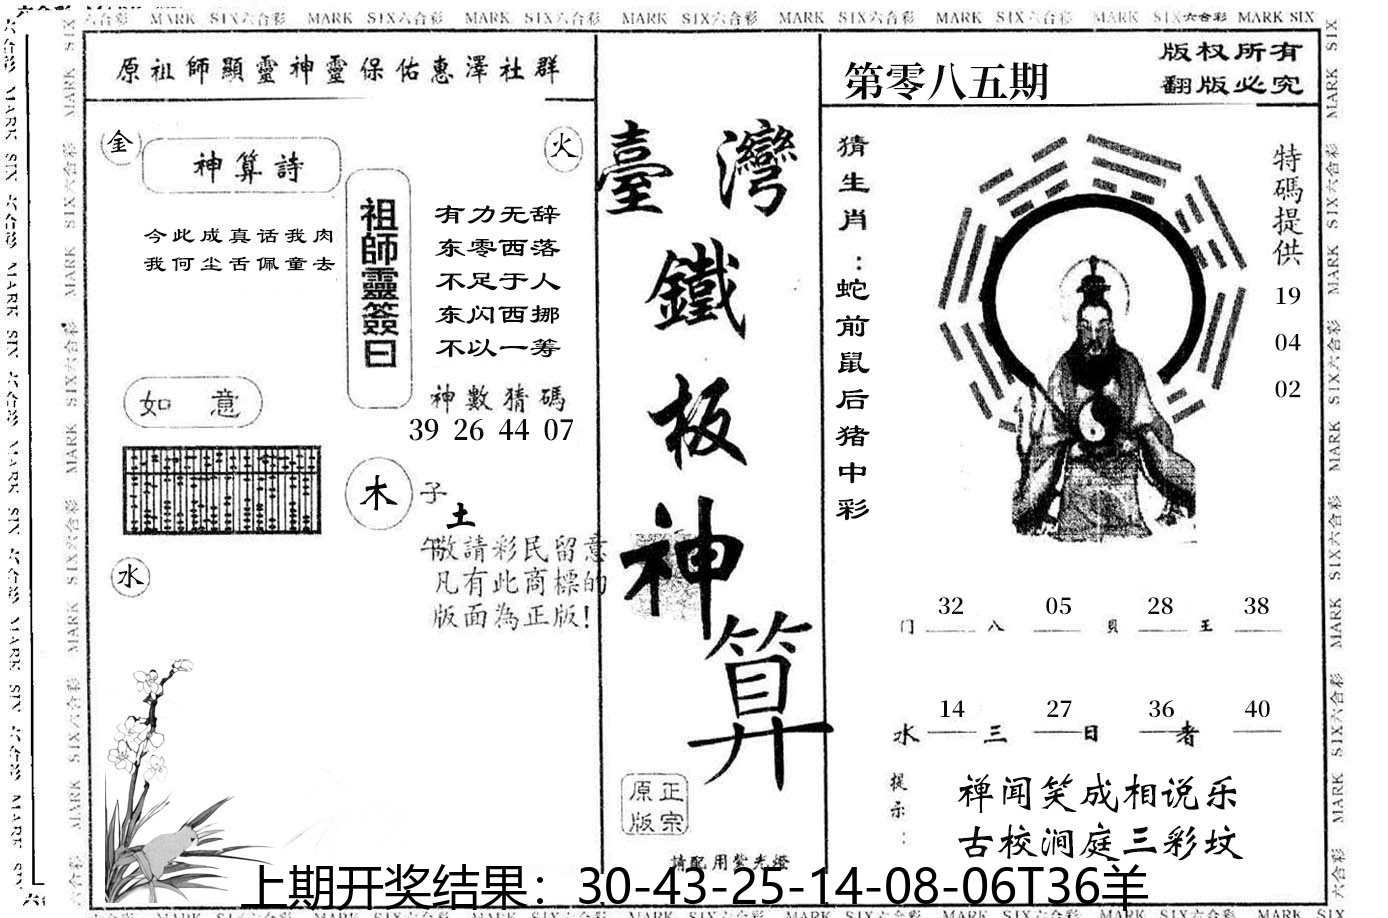 六合彩 MARK SIX六合彩 MARK SIX六合彩 MARK SIX六合彩 MARK SIX六合彩 MARK SIX六合彩 MARK SIX六合彩 MARK SIX六合彩 MARK SIX
原祖師顯靈神靈保佑惠澤社群
金
火
神算詩
今此成真话我肉
我何尘舌佩童去
祖師靈簽曰
有力无辞
东零西落
不足于人
东闪西挪
不以一筹
神數猜碼
39 26 44 07
如 意
木
子
土
午
水
敬請彩民留意
凡有此商標的
版面為正版!
臺灣
鐵
板
神
算
正宗
原版
請配用紫光燈
第零八五期
版权所有
翻版必究
猜生肖：蛇前鼠后猪中彩
特碼提供
19
04
02
32 05 28 38
门 八 貝 王
14 27 36 40
水 三 日 者
提示：
禅闻笑成相说乐
古校涧庭三彩坟
上期开奖结果：30-43-25-14-08-06T36羊